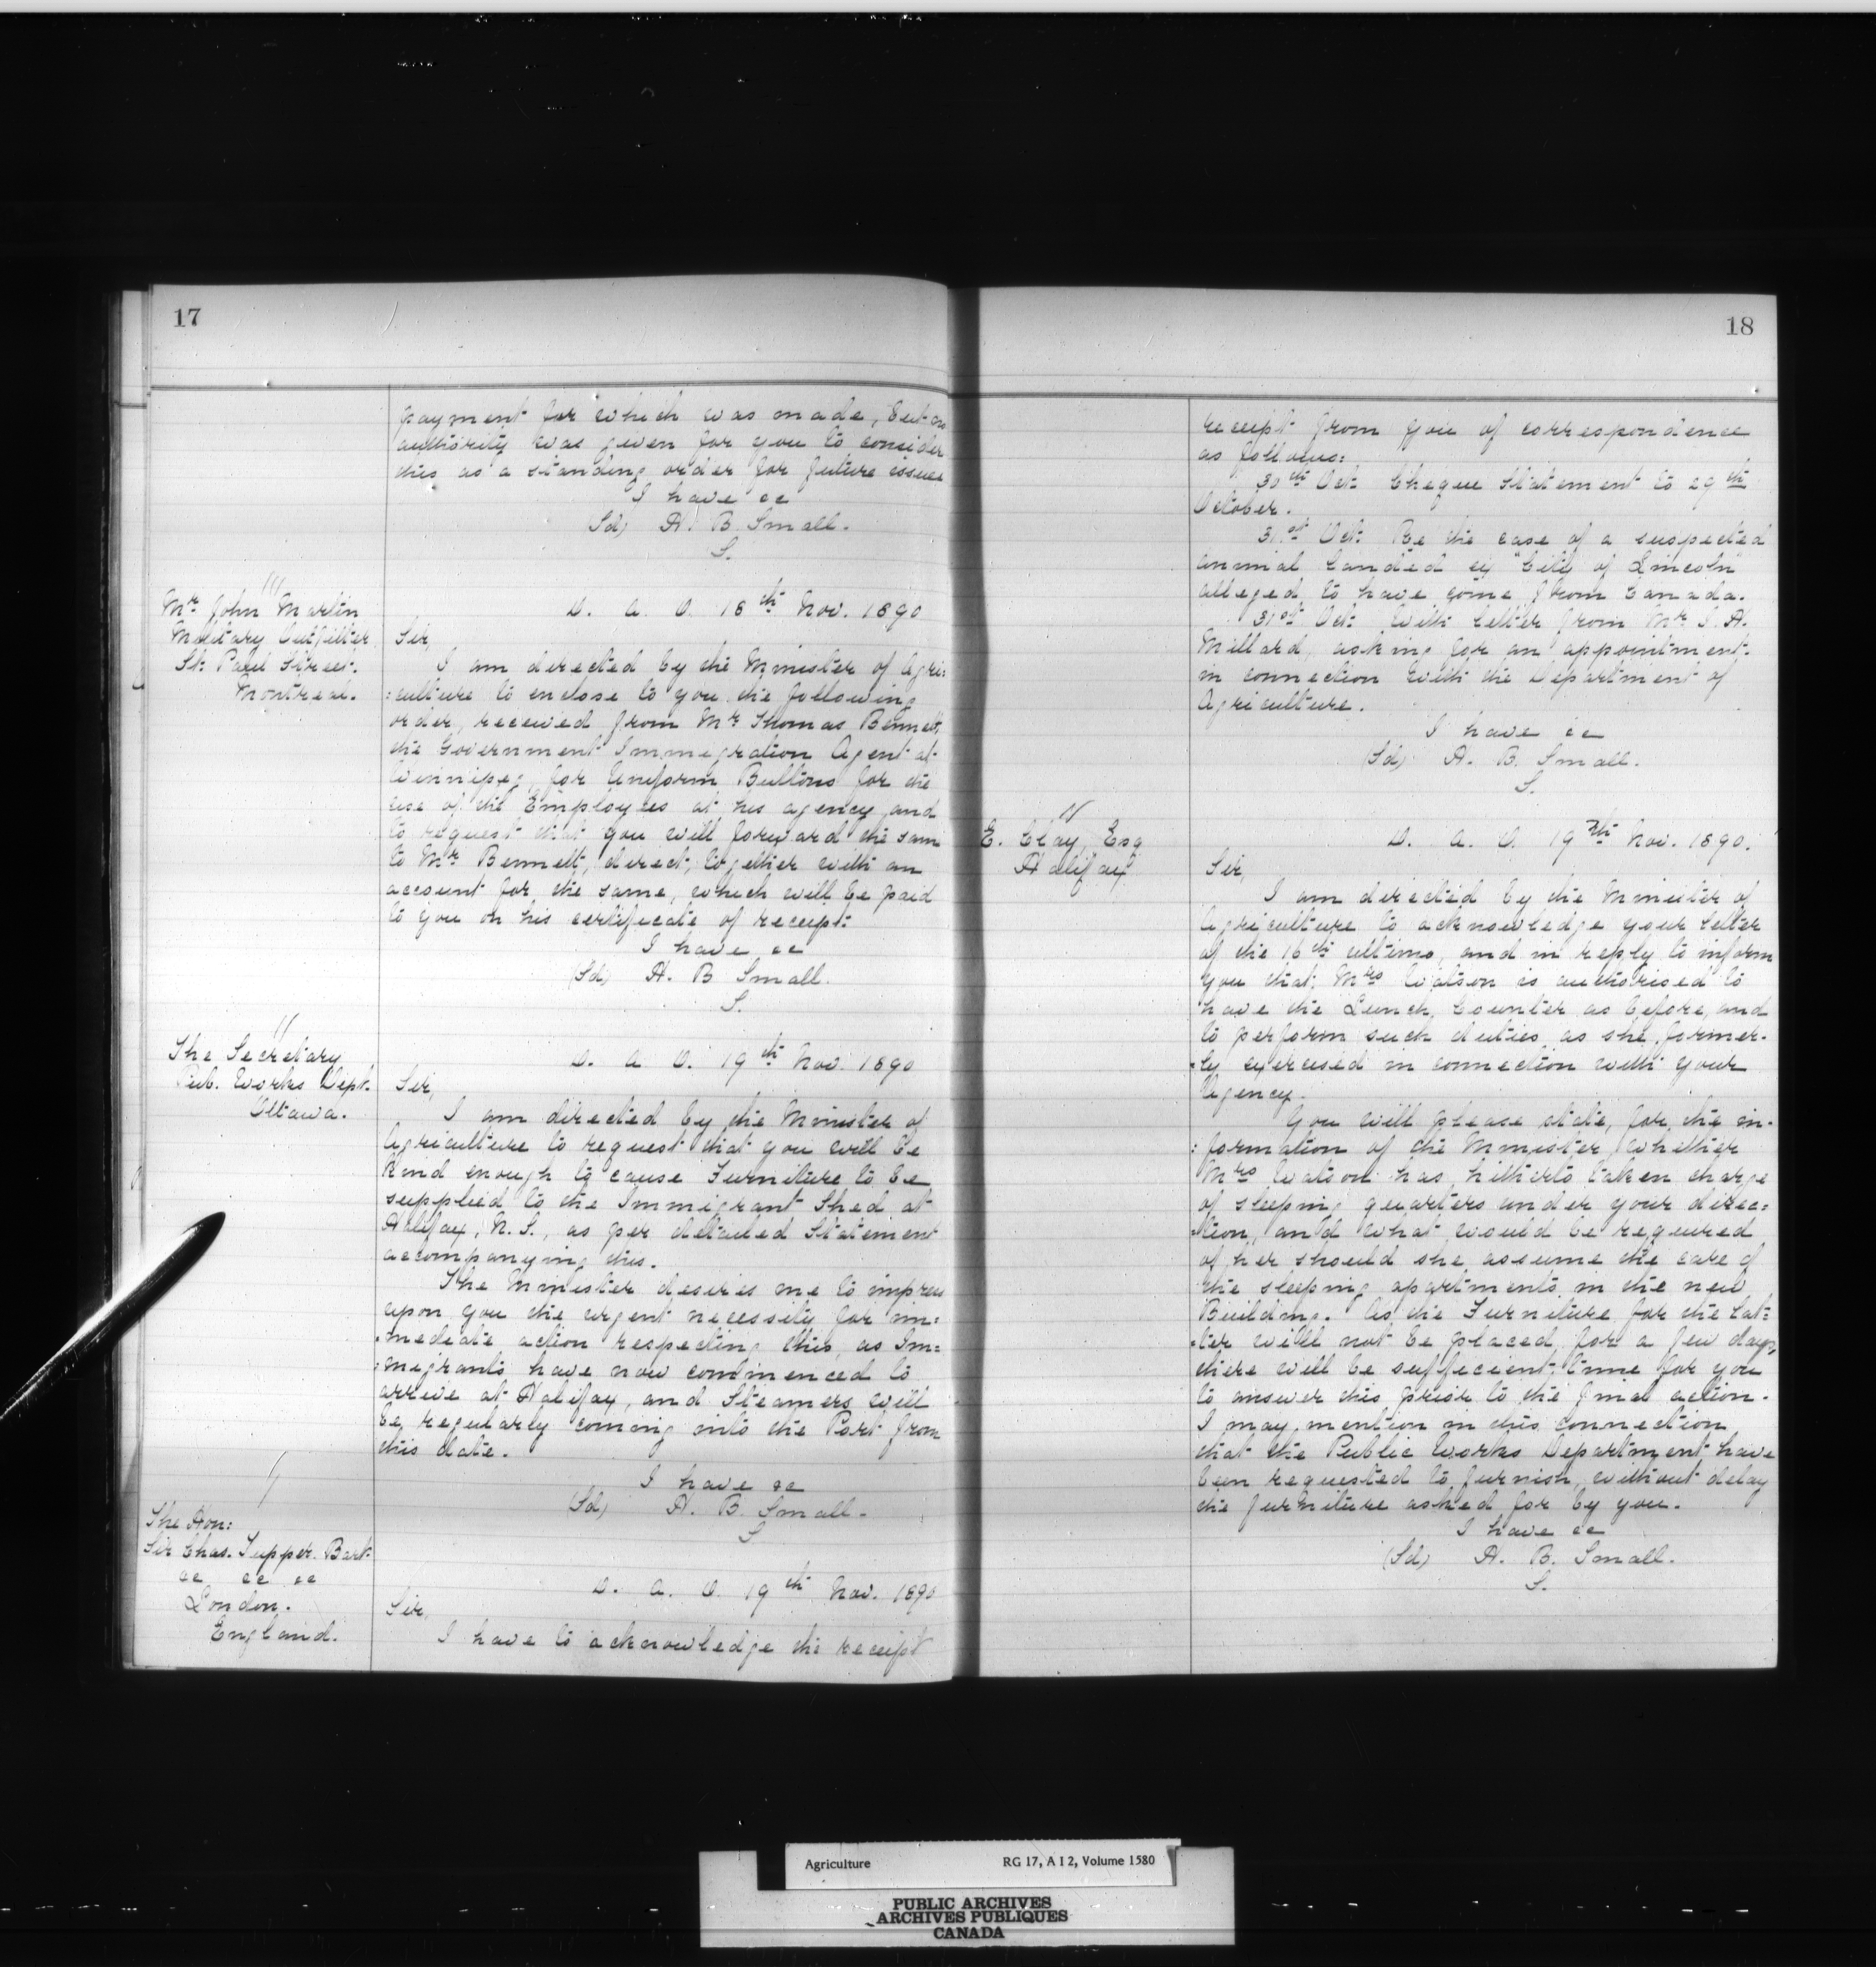 17
payment for which was made, but no
authority was given for you to consider
this as a standing order for future issues
I have &c
(Sd) H. B. Small.
S.
Mr. John Martin
Military Outfitter
St. Paul Street.
Montreal.
D. A. O. 18th Nov. 1890
Sir,
I am directed by the Minister of Agri:
:culture to enclose to you the following
order, received from Mr Thomas Bennett,
the Government Immigration Agent at
Winnipeg, for Uniform Buttons for the
use of the Employees at his agency and
to request that you will forward the same
to Mr Bennett, direct, together with an
account for the same, which will be paid
to you on his certificate of receipt.
I have &c
(Sd) H. B Small.
S.
The Secretary
Pub. Works Dept.
Ottawa.
D. A. O. 19th Nov. 1890
Sir,
I am directed by the Minister of
Agriculture to request that you will be
kind enough to cause Furniture to be
supplied to the Immigrant Shed at
Halifax, N. S., as per detailed Statement
accompanying this.
The Minister desires me to impress
upon you the urgent necessity for im:
:mediate action respecting this, as Im:
:migrants have now commenced to
arrive at Halifax, and Steamers will
be regularly coming into the Port from
this date.
I have &c
(Sd) H. B. Small.
S
The Hon:
Sir Chas. Tupper. Bart.
&c &c &c
London.
England.
D. A. O. 19th Nov. 1890
Sir,
I have to acknowledge the receipt
18
receipt from you of correspondence
as follows:
30th Oct. Cheque Statement to 29th
October.
31st Oct. Re the case of a suspected
animal landed ex "City of Lincoln"
alleged to have come from Canada.
31st Oct. With letter from Mr S. H.
Millard, asking for an appointment
in connection with the Department of
Agriculture.
I have &c
(Sd) H. B. Small.
S.
E. Clay, Esq
Halifax
D. A. O. 19th Nov. 1890.
Sir,
I am directed by the Minister of
Agriculture to acknowledge your letter
of the 16th ultimo, and in reply to inform
you that Mrs Watson is authorised to
have the Lunch Counter as before, and
to perform such duties as she former-
-ly exercised in connection with your
Agency.
You will please state, for the in-
:formation of the Minister, whether
Mrs Watson has hitherto taken charge
of sleeping quarters under your direc:
:tion, and what would be required
of her should she assume the care of
the sleeping apartments in the new
Building. As the Furniture for the lat:
:ter will not be placed for a few days,
there will be sufficient time for you
to answer this prior to the final action.
I may mention in this connection
that the Public Works Department have
been requested to furnish, without delay
the furniture asked for by you.
I have &c
(Sd) H. B. Small.
S.
Agriculture RG 17, A I 2, Volume 1580
PUBLIC ARCHIVES
ARCHIVES PUBLIQUES
CANADA